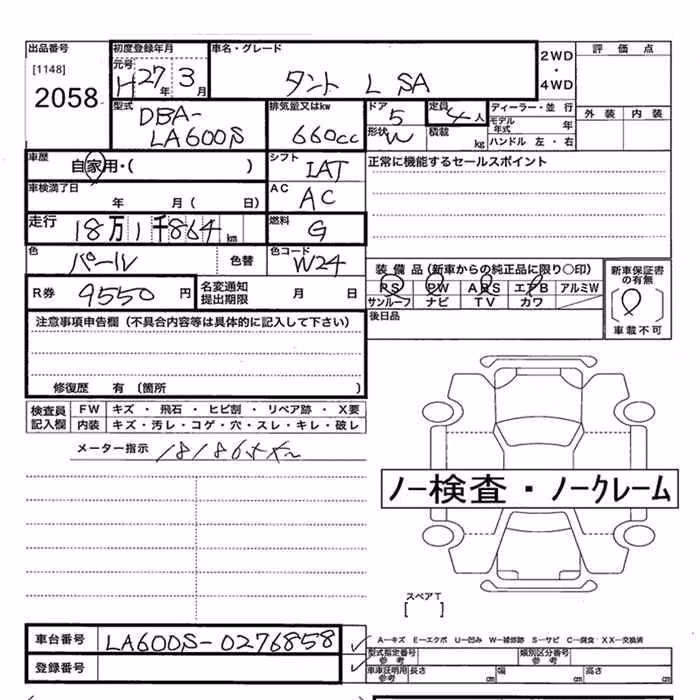 出品番号
[1148]
2058
初度登録年月
元号
H27年3月
車名・グレード
タント L SA
2WD
・
4WD
評価点
外装 内装
型式
DBA-
LA600S
排気量又はkw
660cc
ドア
5
形状
W
定員
4人
積載
kg
ディーラー・並 行
モデル年式 年
ハンドル 左・右
車歴
自家用・( )
シフト
IAT
正常に機能するセールスポイント
車検満了日
年 月( 日)
AC
AC
走行
18万1千864km
燃料
G
色
パール
色替
色コード
W24
装備品(新車からの純正品に限り○印)
PS PW ABS エアB アルミW
サンルーフ ナビ TV カワ
新車保証書の有無
車載不可
R券 9550円
名変通知
提出期限
月 日
後日品
注意事項申告欄(不具合内容等は具体的に記入して下さい)
修復歴 有(箇所 )
検査員
記入欄
FW キズ・飛石・ヒビ割・リペア跡・X要
内装 キズ・汚レ・コゲ・穴・スレ・キレ・破レ
メーター指示
ノー検査・ノークレーム
スペアT
[ ]
車台番号 LA600S-0276858
登録番号
A-キズ E-エクボ U-凹み W-補修跡 S-サビ C-腐食 XX-交換済
型式指定番号
参考
類別区分番号
参考
車庫証明用
参考
長さ cm 幅 cm 高さ cm